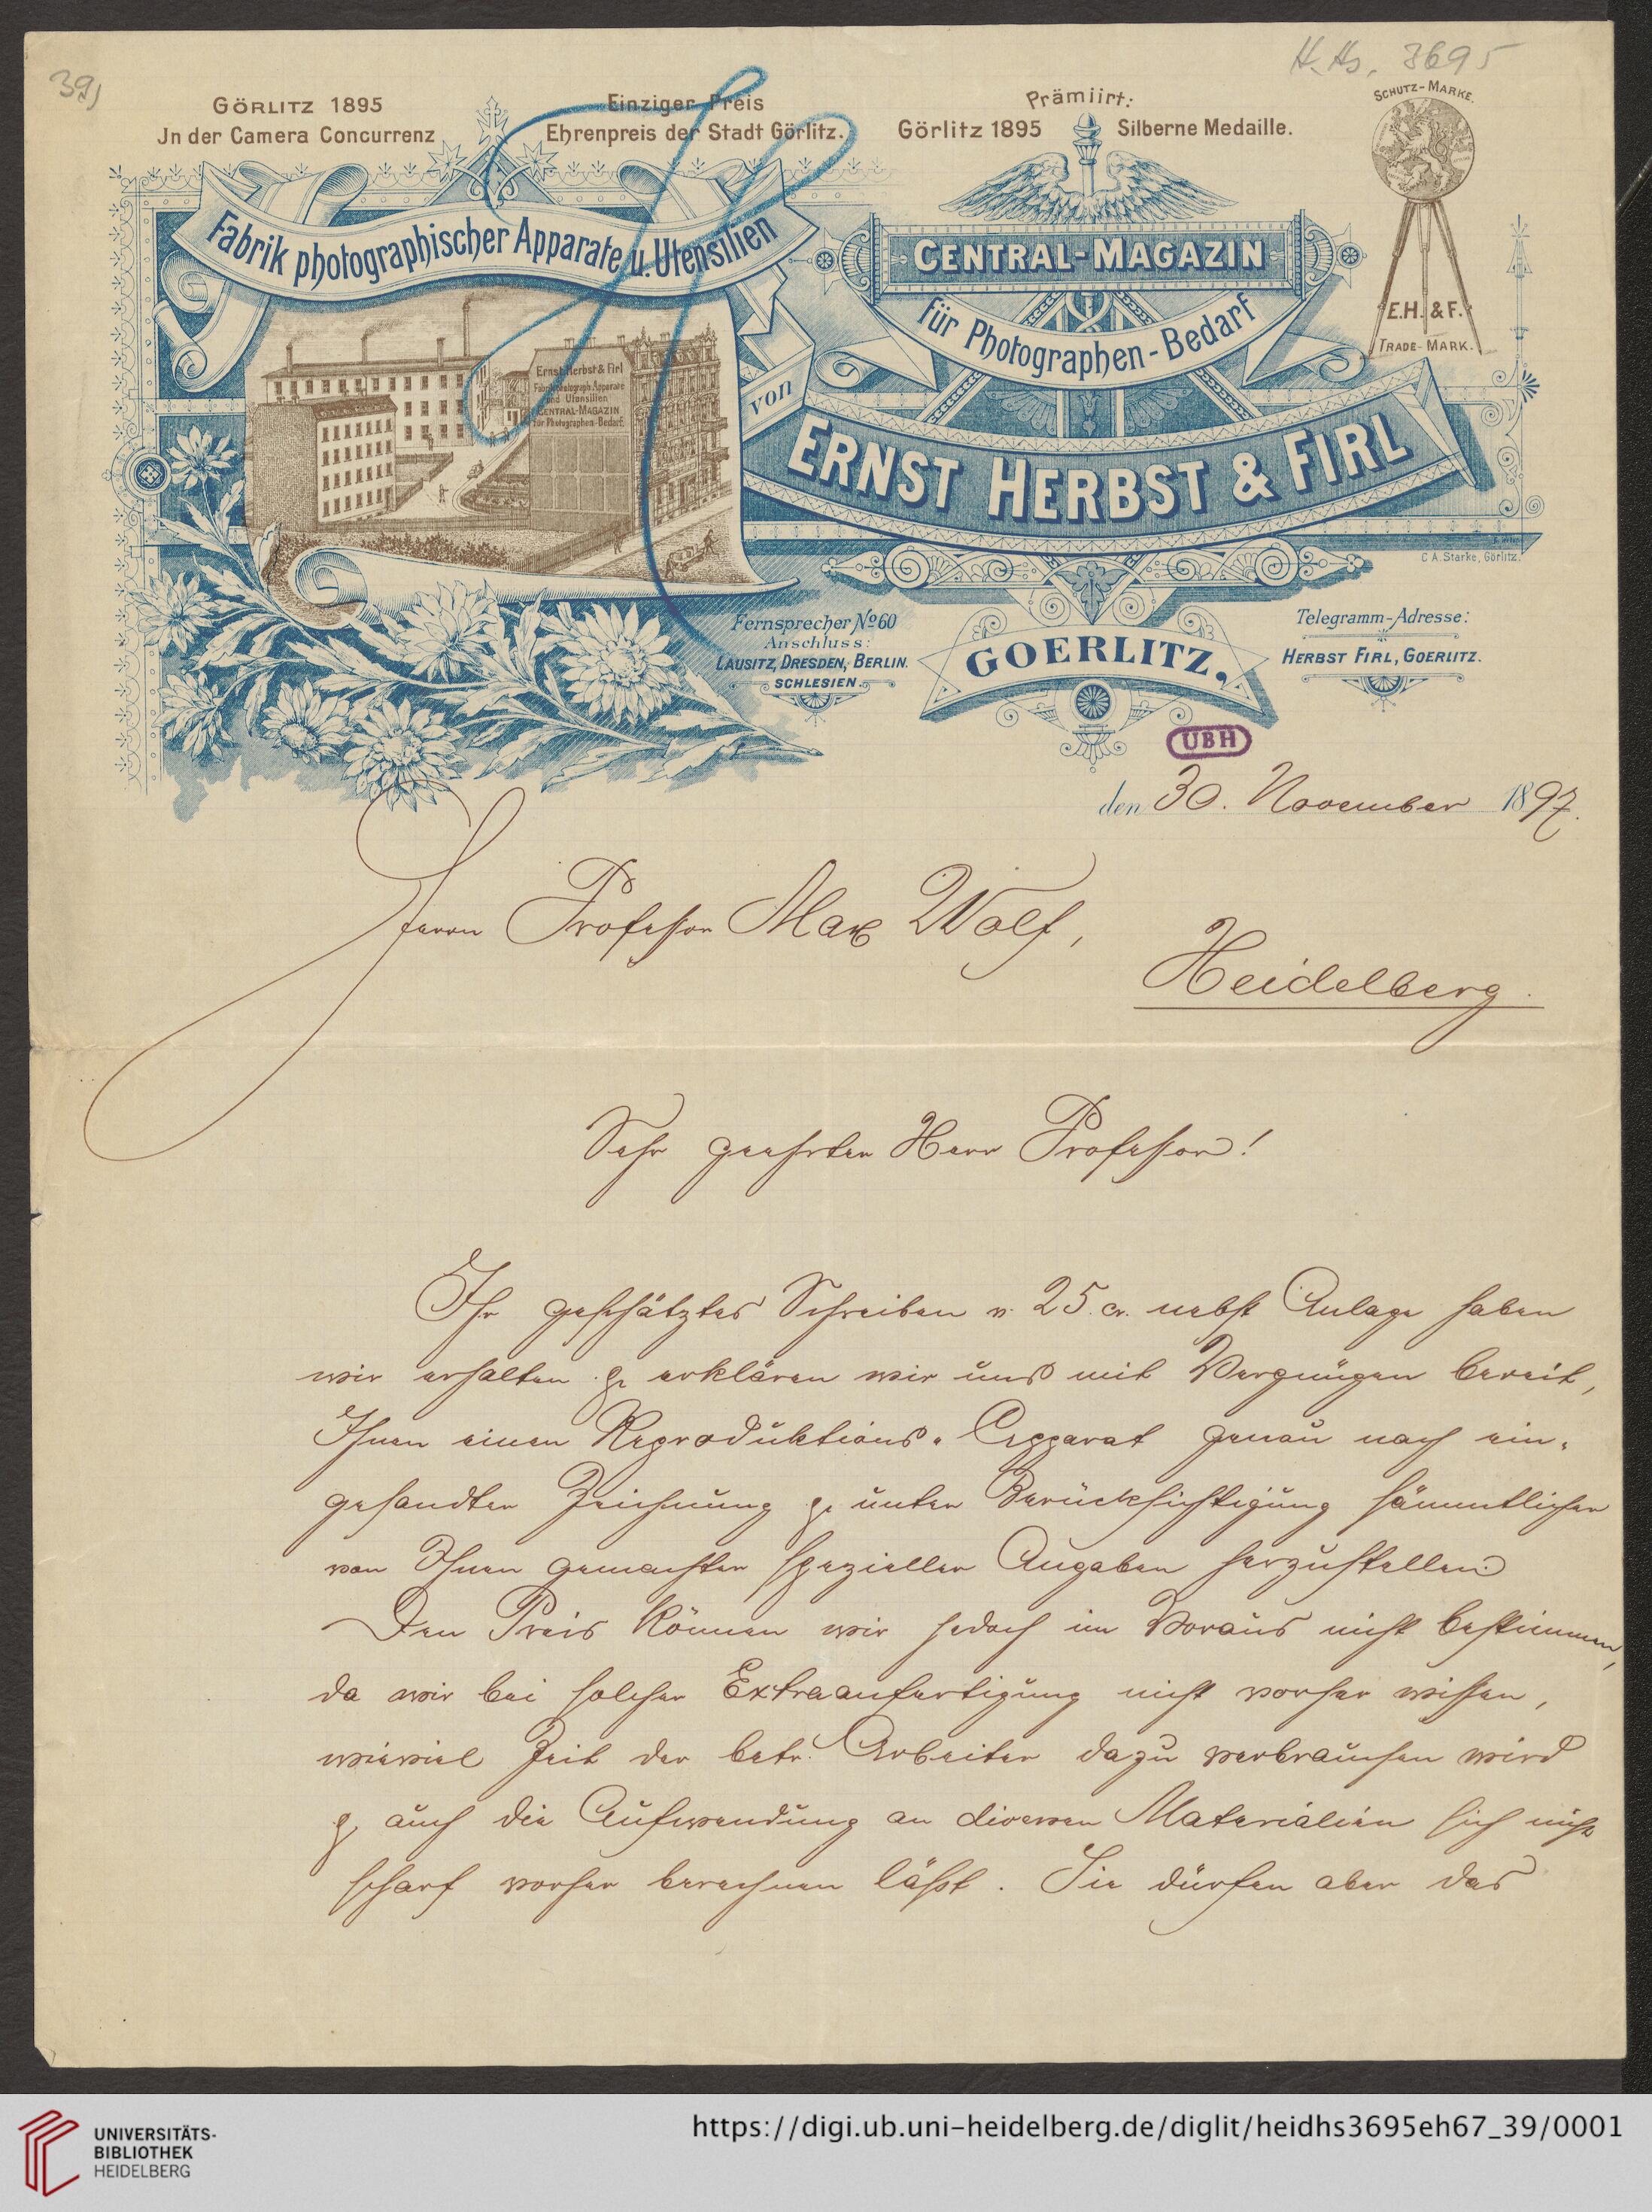 39)
H. Hs. 3695
GÖRLITZ 1895
Jn der Camera Concurrenz
Einziger Preis
Ehrenpreis der Stadt Görlitz.
Prämiirt:
Görlitz 1895 Silberne Medaille.
SCHUTZ-MARKE.
E.H. & F.
TRADE-MARK.
Fabrik photographischer Apparate u. Utensilien
Ernst Herbst & Firl
Fabrik photograph. Apparate
und Utensilien
CENTRAL-MAGAZIN
für Photographen-Bedarf.
CENTRAL-MAGAZIN
für Photographen-Bedarf
von
ERNST HERBST & FIRL
C. A. Starke, Görlitz.
Fernsprecher No 60
Anschluss:
LAUSITZ, DRESDEN, BERLIN.
SCHLESIEN.
GOERLITZ,
Telegramm-Adresse:
HERBST FIRL, GOERLITZ.
UBH
den 30. November 1897.
Herrn Professor Max Wolf,
Heidelberg.
Sehr geehrter Herr Professor!
Ihr geschätztes Schreiben v. 25. cr. nebst Anlage haben
wir erhalten & erklären wir uns mit Vergnügen bereit,
Ihnen einen Reproduktions-Apparat genau nach ein-
gesandter Zeichnung & unter Berücksichtigung sämmtlicher
von Ihnen gemachter spezieller Angaben herzustellen.
Den Preis können wir jedoch im Voraus nicht bestimmen,
da wir bei solcher Extraanfertigung nicht vorher wissen,
wieviel Zeit der betr. Arbeiter dazu verbrauchen wird
& auch die Aufwendung an diversen Materialien sich nicht
scharf vorher berechnen läßt. Sie dürfen aber das
UNIVERSITÄTS-
BIBLIOTHEK
HEIDELBERG
https://digi.ub.uni-heidelberg.de/diglit/heidhs3695eh67_39/0001